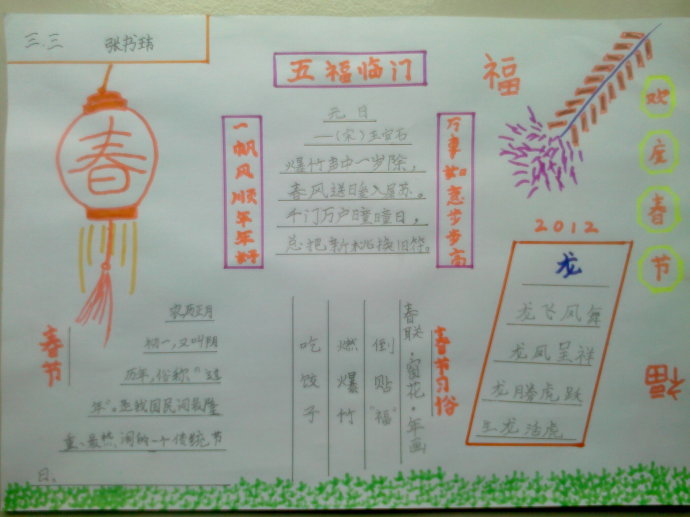 三.三 张书瑃
春
五福临门
一帆风顺年年好
元日
——(宋)王安石
爆竹声中一岁除,
春风送日暖入屠苏。
千门万户曈曈日,
总把新桃换旧符。
万事如意步步高
福
欢度春节
2012
龙
龙飞凤舞
龙凤呈祥
龙腾虎跃
生龙活虎
福
春节
农历正月
初一,又叫阴
历年,俗称“过
年”。是我国民间最隆
重、最热闹的一个传统节
日。
春节习俗
春联·窗花·年画
倒贴“福”
燃爆竹
吃饺子